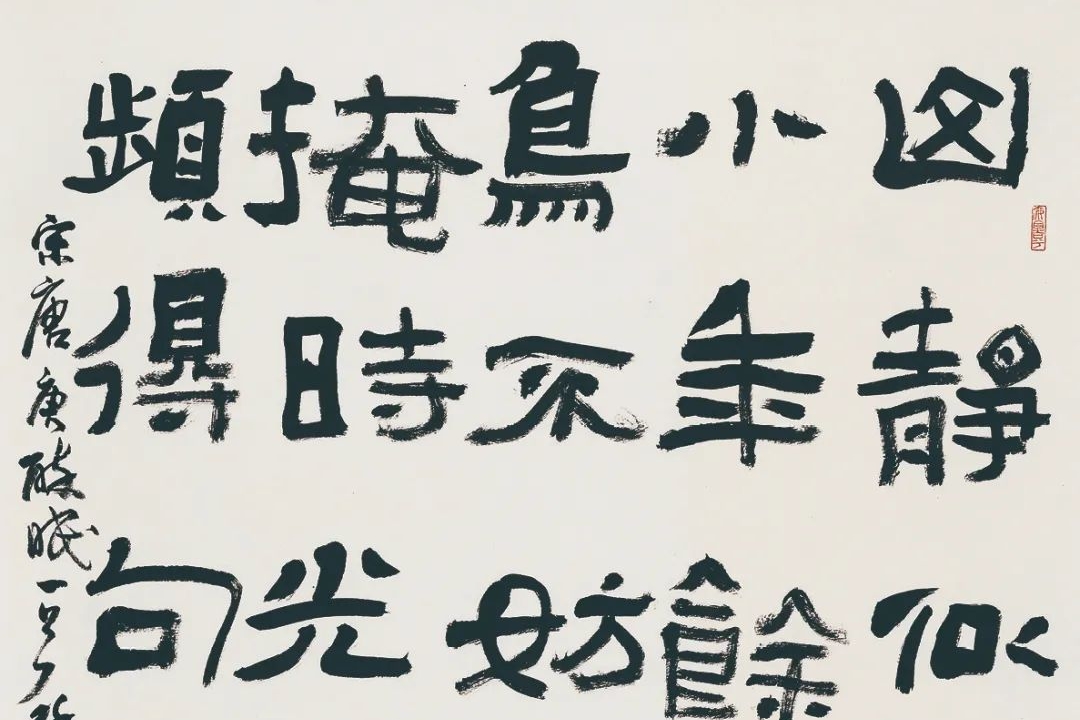 山靜似
小年餘
鳥不妨
掩時光
頻得句
宋唐庚醉眠一